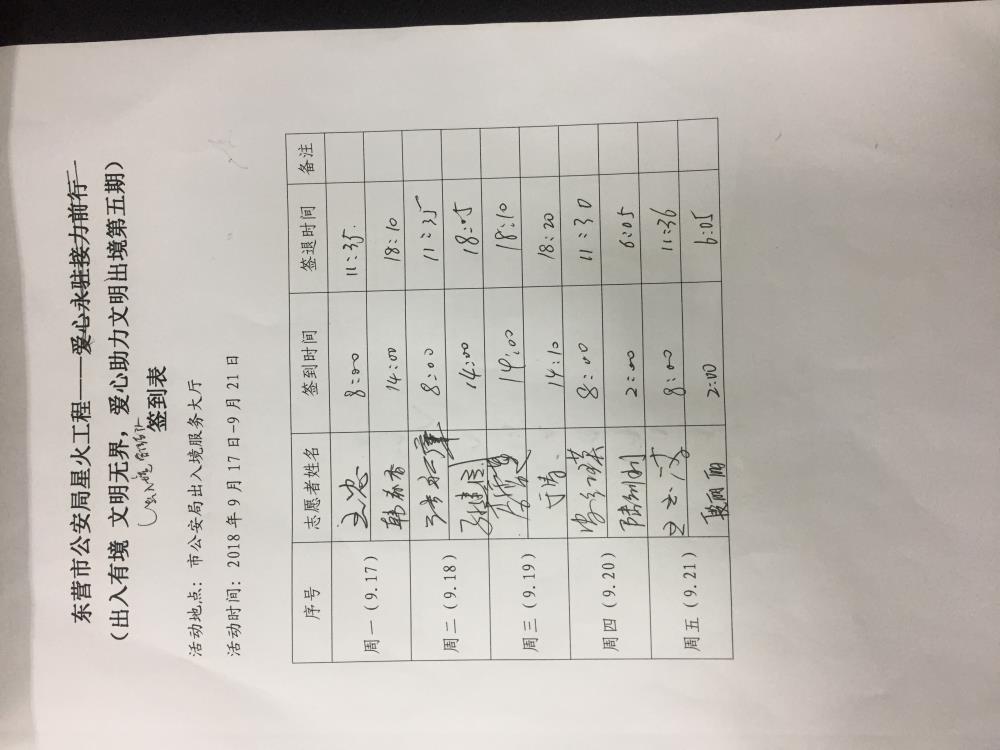 东营市公安局星火工程——爱心永驻接力前行
(出入有境 文明无界，爱心助力文明出境第五期)
签到表
活动地点：市公安局出入境服务大厅
活动时间：2018年9月17日-9月21日
序号 志愿者姓名 签到时间 签退时间 备注
周一（9.17） 8:00 11:35.
韩春香 14:00 18:10
周二（9.18） 8:00 11:35
14:00 18:05
周三（9.19） 14:00 18:10
14:10 18:20
周四（9.20） 8:00 11:30
2:00 6:05
周五（9.21） 8:00 11:36
段丽丽 2:00 6:05